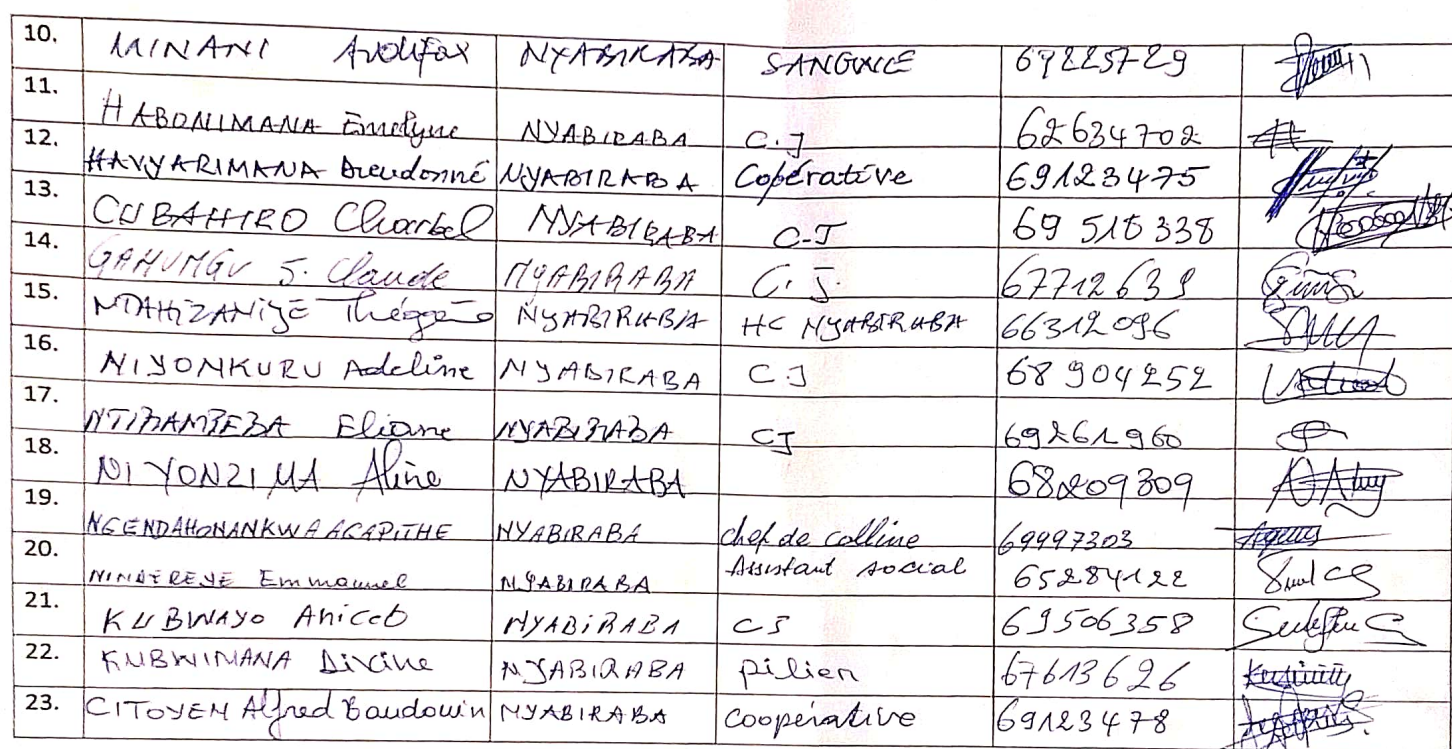 10. MINANI Avolifax NYABIRABA SANGWE 69225729
11. HABONIMANA Emelyne NYABIRABA C.J 62634702
12. HAVYARIMANA Dieudonné NYABIRABA Copérative 69123475
13. CUBAHIRO Charbel NYABIRABA C-J 69 518 338
14. GAHUNGU J. Claude NYABIRABA C.J. 67712639
15. NTAHIZANIYE NYABIRABA HC NYABIRABA 66312096
16. NIYONKURU Adeline NYABIRABA CJ 68 904252
17. NTIRAMPEBA Eliane NYABIRABA CJ 69261960
18. NIYONZIMA Aline NYABIRABA 68209309
19. NGENDAHONANKWA AGAPITHE NYABIRABA chef de colline 69997303
20. NINDEREYE Emmanuel NYABIRABA Assistant social 65284122
21. KUBWAYO Anicet NYABIRABA CJ 69506358
22. KUBWIMANA Divine NYABIRABA pilier 67613626
23. CITOYEN Alfred Baudouin NYABIRABA Coopérative 69123478